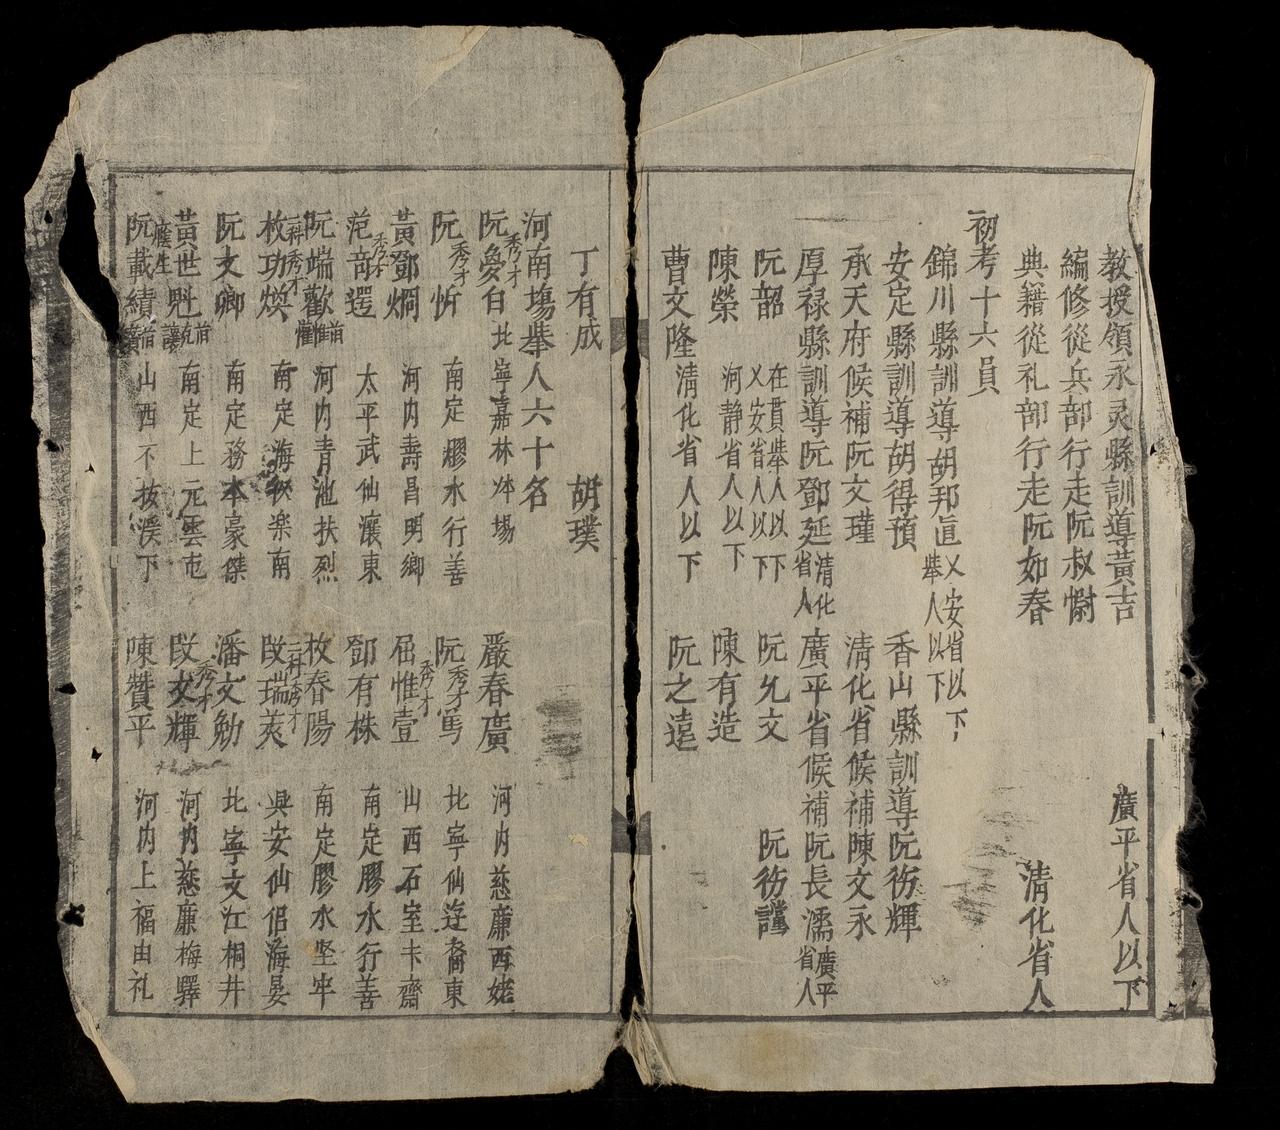 教授領永灵縣訓導黃吉 廣平省人以下
編修從兵部行走阮叔㥜
典籍從礼部行走阮如春 清化省人
初考十六員
錦川縣訓導胡邦直 乂安省以下 舉人以下
安定縣訓導胡得預 香山縣訓導阮衒輝
承天府候補阮文瑾 清化省候補陳文永
厚禄縣訓導阮鄧延 清化省人 廣平省候補阮長濡 廣平省人
阮韶 在貫舉人以下 乂安省人以下 阮允文 阮衒讜
陳榮 河静省人以下 陳有造
曹文隆 清化省人以下 阮之遠
丁有成 胡璞
河南塲舉人六十名
阮愛白 秀才 北寧嘉林 塲 嚴春廣 河内慈廉西姥
阮忻 秀才 南定膠水行善 阮寫 秀才 北寧仙遊裔東
黃鄧烱 河内壽昌明鄉 屈惟壹 秀才 山西石室卞齋
范竒選 秀才 太平武仙瀼東 鄧有株 南定膠水行善
阮端歡 前惟懽 河内青池扶烈 枚春陽 南定膠水坚牢
枚功焕 二科秀才 南定海 楽南 段瑞莢 二科秀才 興安仙侣海晏
阮文卿 南定務本豪傑 潘文勉 北寧文江桐井
黃世魁 前克讓 南定上元雲屯 段文輝 秀才 河内慈廉梅驛
阮載績 廕生 前廣 山西不拔溪下 陳贊平 河内上福由礼